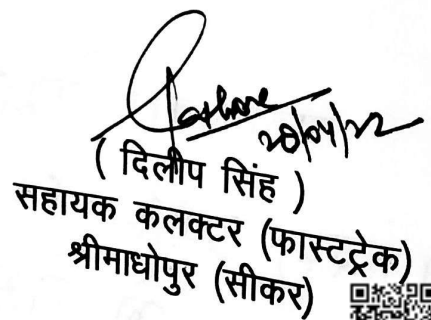 20/04/22
( दिलीप सिंह )
सहायक कलक्टर (फास्टट्रेक)
श्रीमाधोपुर (सीकर)